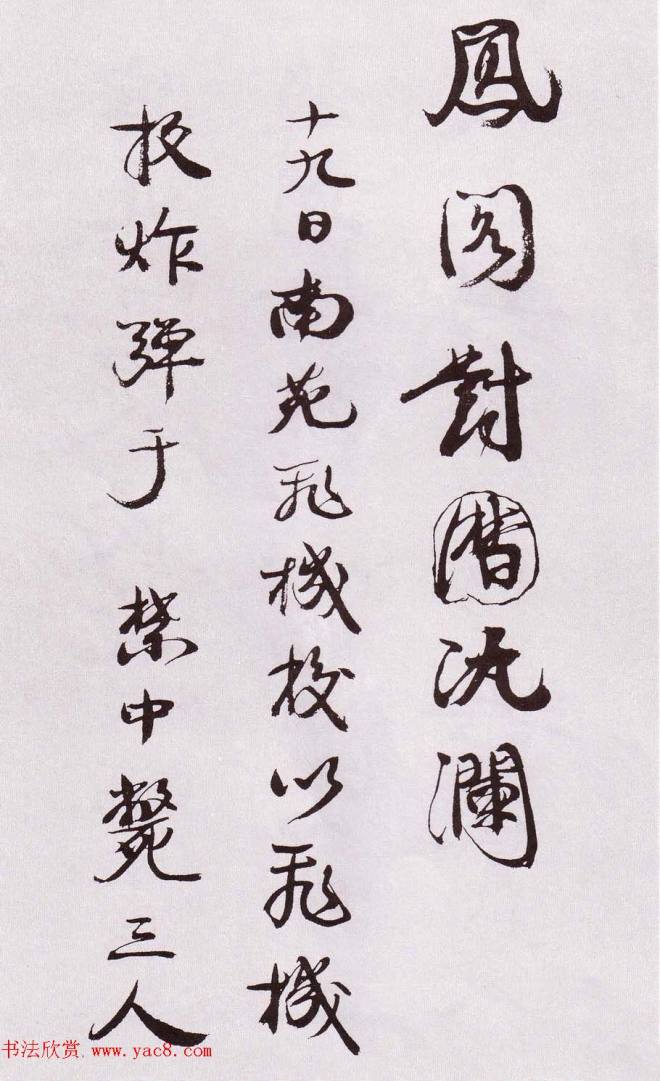 鳳閣對汍瀾
十九日南苑飛機校以飛機
投炸彈于 禁中斃三人
书法欣赏.www.yac8.com